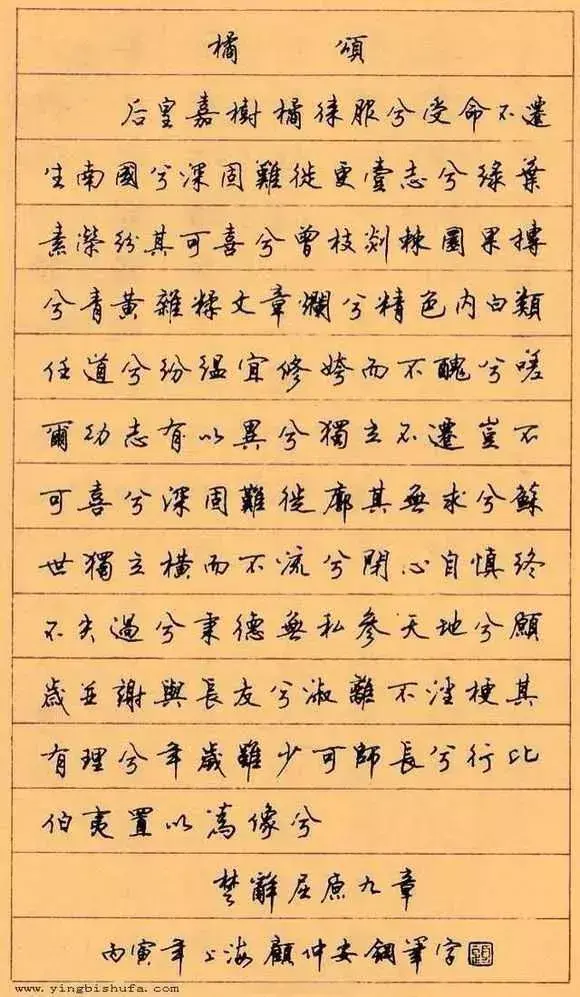 橘頌
后皇嘉樹橘徠服兮受命不遷
生南國兮深固難徙更壹志兮綠葉
素榮紛其可喜兮曾枝剡棘圜果摶
兮青黃雜糅文章爛兮精色內白類
任道兮紛縕宜修姱而不醜兮嗟
爾幼志有以異兮獨立不遷豈不
可喜兮深固難徙廓其無求兮蘇
世獨立橫而不流兮閉心自慎終
不失過兮秉德無私參天地兮願
歲並謝與長友兮淑離不淫梗其
有理兮年歲雖少可師長兮行比
伯夷置以為像兮
楚辭屈原九章
丙寅年上海顧仲安鋼筆字
www.yingbishufa.com